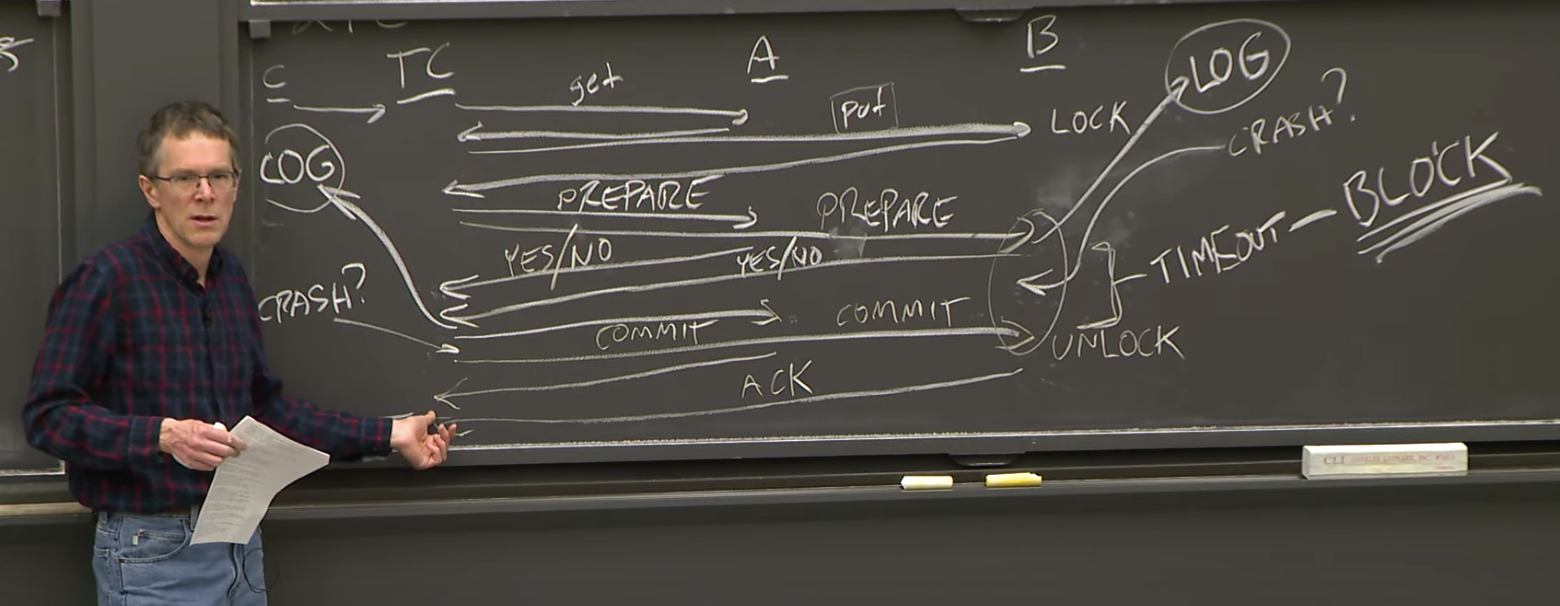 C TC A B
get
LOG
put
LOCK
CRASH?
LOG
PREPARE PREPARE
BLOCK
YES/NO YES/NO
TIMEOUT
CRASH?
COMMIT COMMIT
UNLOCK
ACK